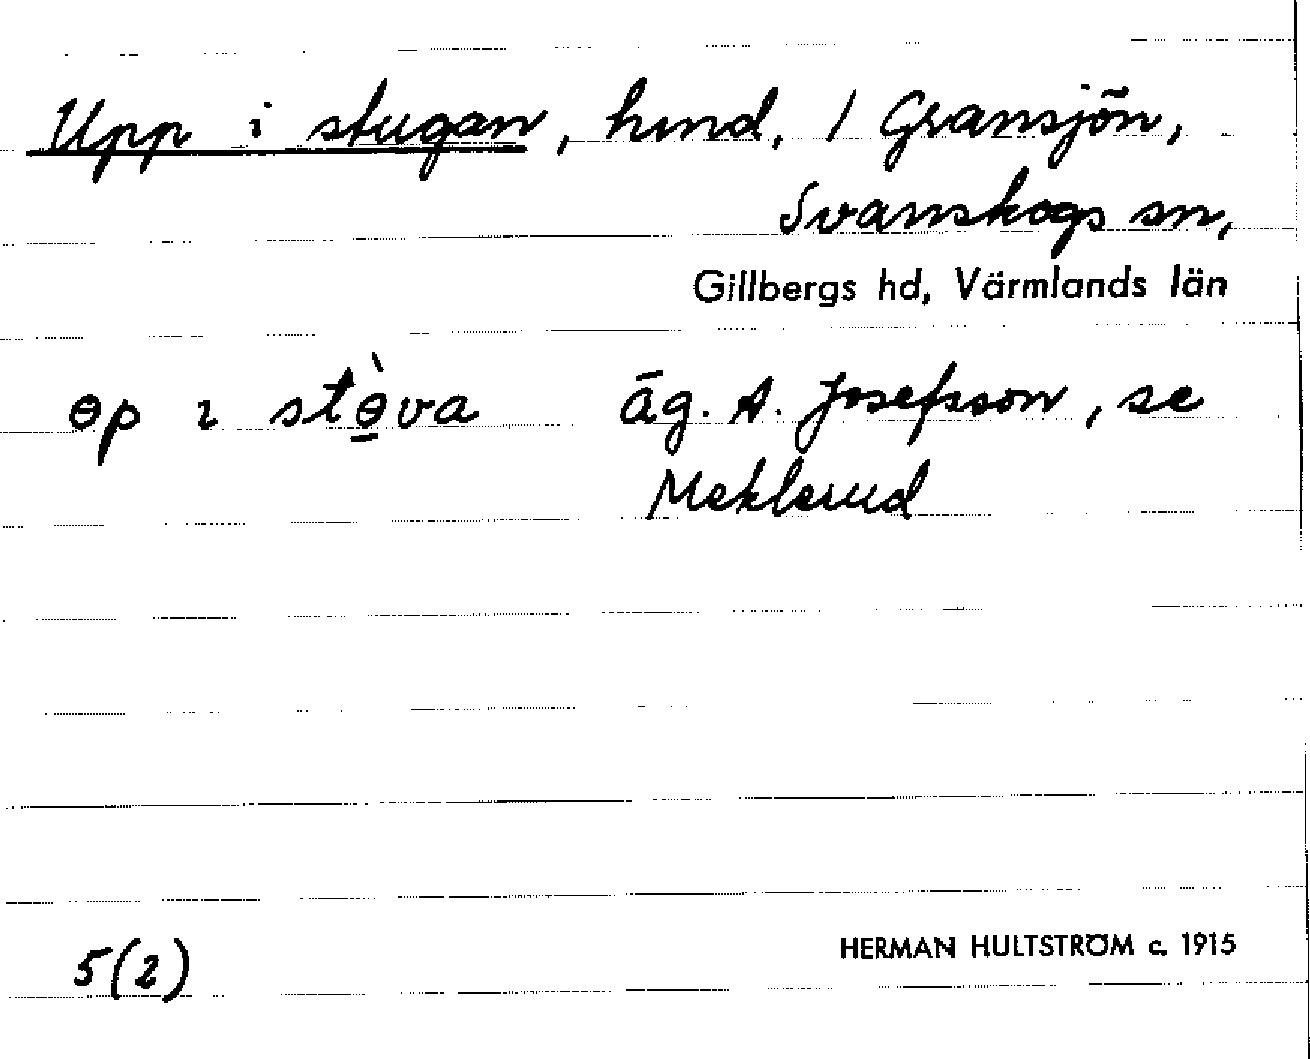 Upp i stugan, hmd, / Gransjön,
Svanskogs sn,
Gillbergs hd, Värmlands län
ɵp ɩ stɵ̠̀va äg. A. Josefsson, se
Meklerud
5(2)
HERMAN HULTSTRÖM c. 1915